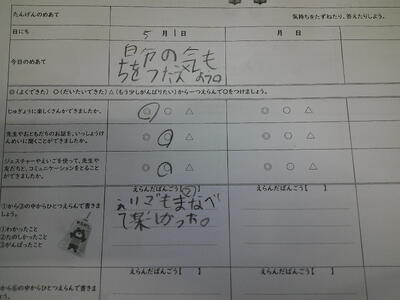 たんげんのめあて
気持ちをたずねたり、答えたりしよう。
日にち
5月1日
月 日
今日のめあて
自分の気も
ちをつたえよう。
◎(よくできた) ○(だいたいできた) △(もう少しがんばりたい)から一つえらんで○をつけましょう。
じゅぎょうに楽しくさんかできましたか。
◎ ○ △
◎ ○ △
先生やおともだちのお話を、いっしょうけんめいに聞くことができましたか。
◎ ○ △
◎ ○ △
ジェスチャーやえいごを使って、先生や
友だちと、コミュニケーションをとること
ができましたか。
◎ ○ △
◎ ○ △
えらんだばんごう【②】
えらんだばんごう【 】
①から③の中からひとつえらんで書きま
しょう。
①わかったこと
②たのしかったこと
③がんばったこと
えいごもまなべ
て楽しかった。
えらんだばんごう【 】
えらんだばんごう【 】
の中からひとつえらんで書きま